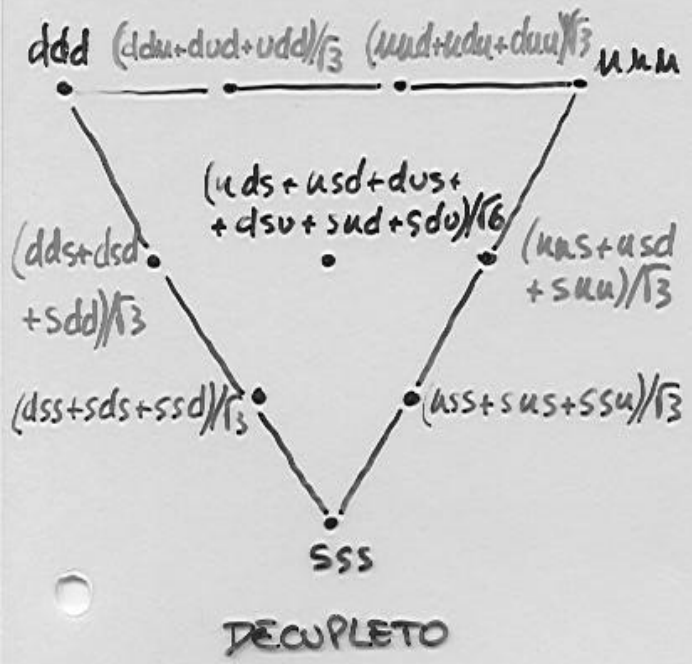 ddd (ddu+dud+udd)/√3 (uud+udu+duu)/√3 uuu
(uds+usd+dus+
+dsu+sud+sdu)/√6
(dds+dsd
+sdd)/√3
(uus+usd
+suu)/√3
(dss+sds+ssd)/√3
(uss+sus+ssu)/√3
sss
DECUPLETO